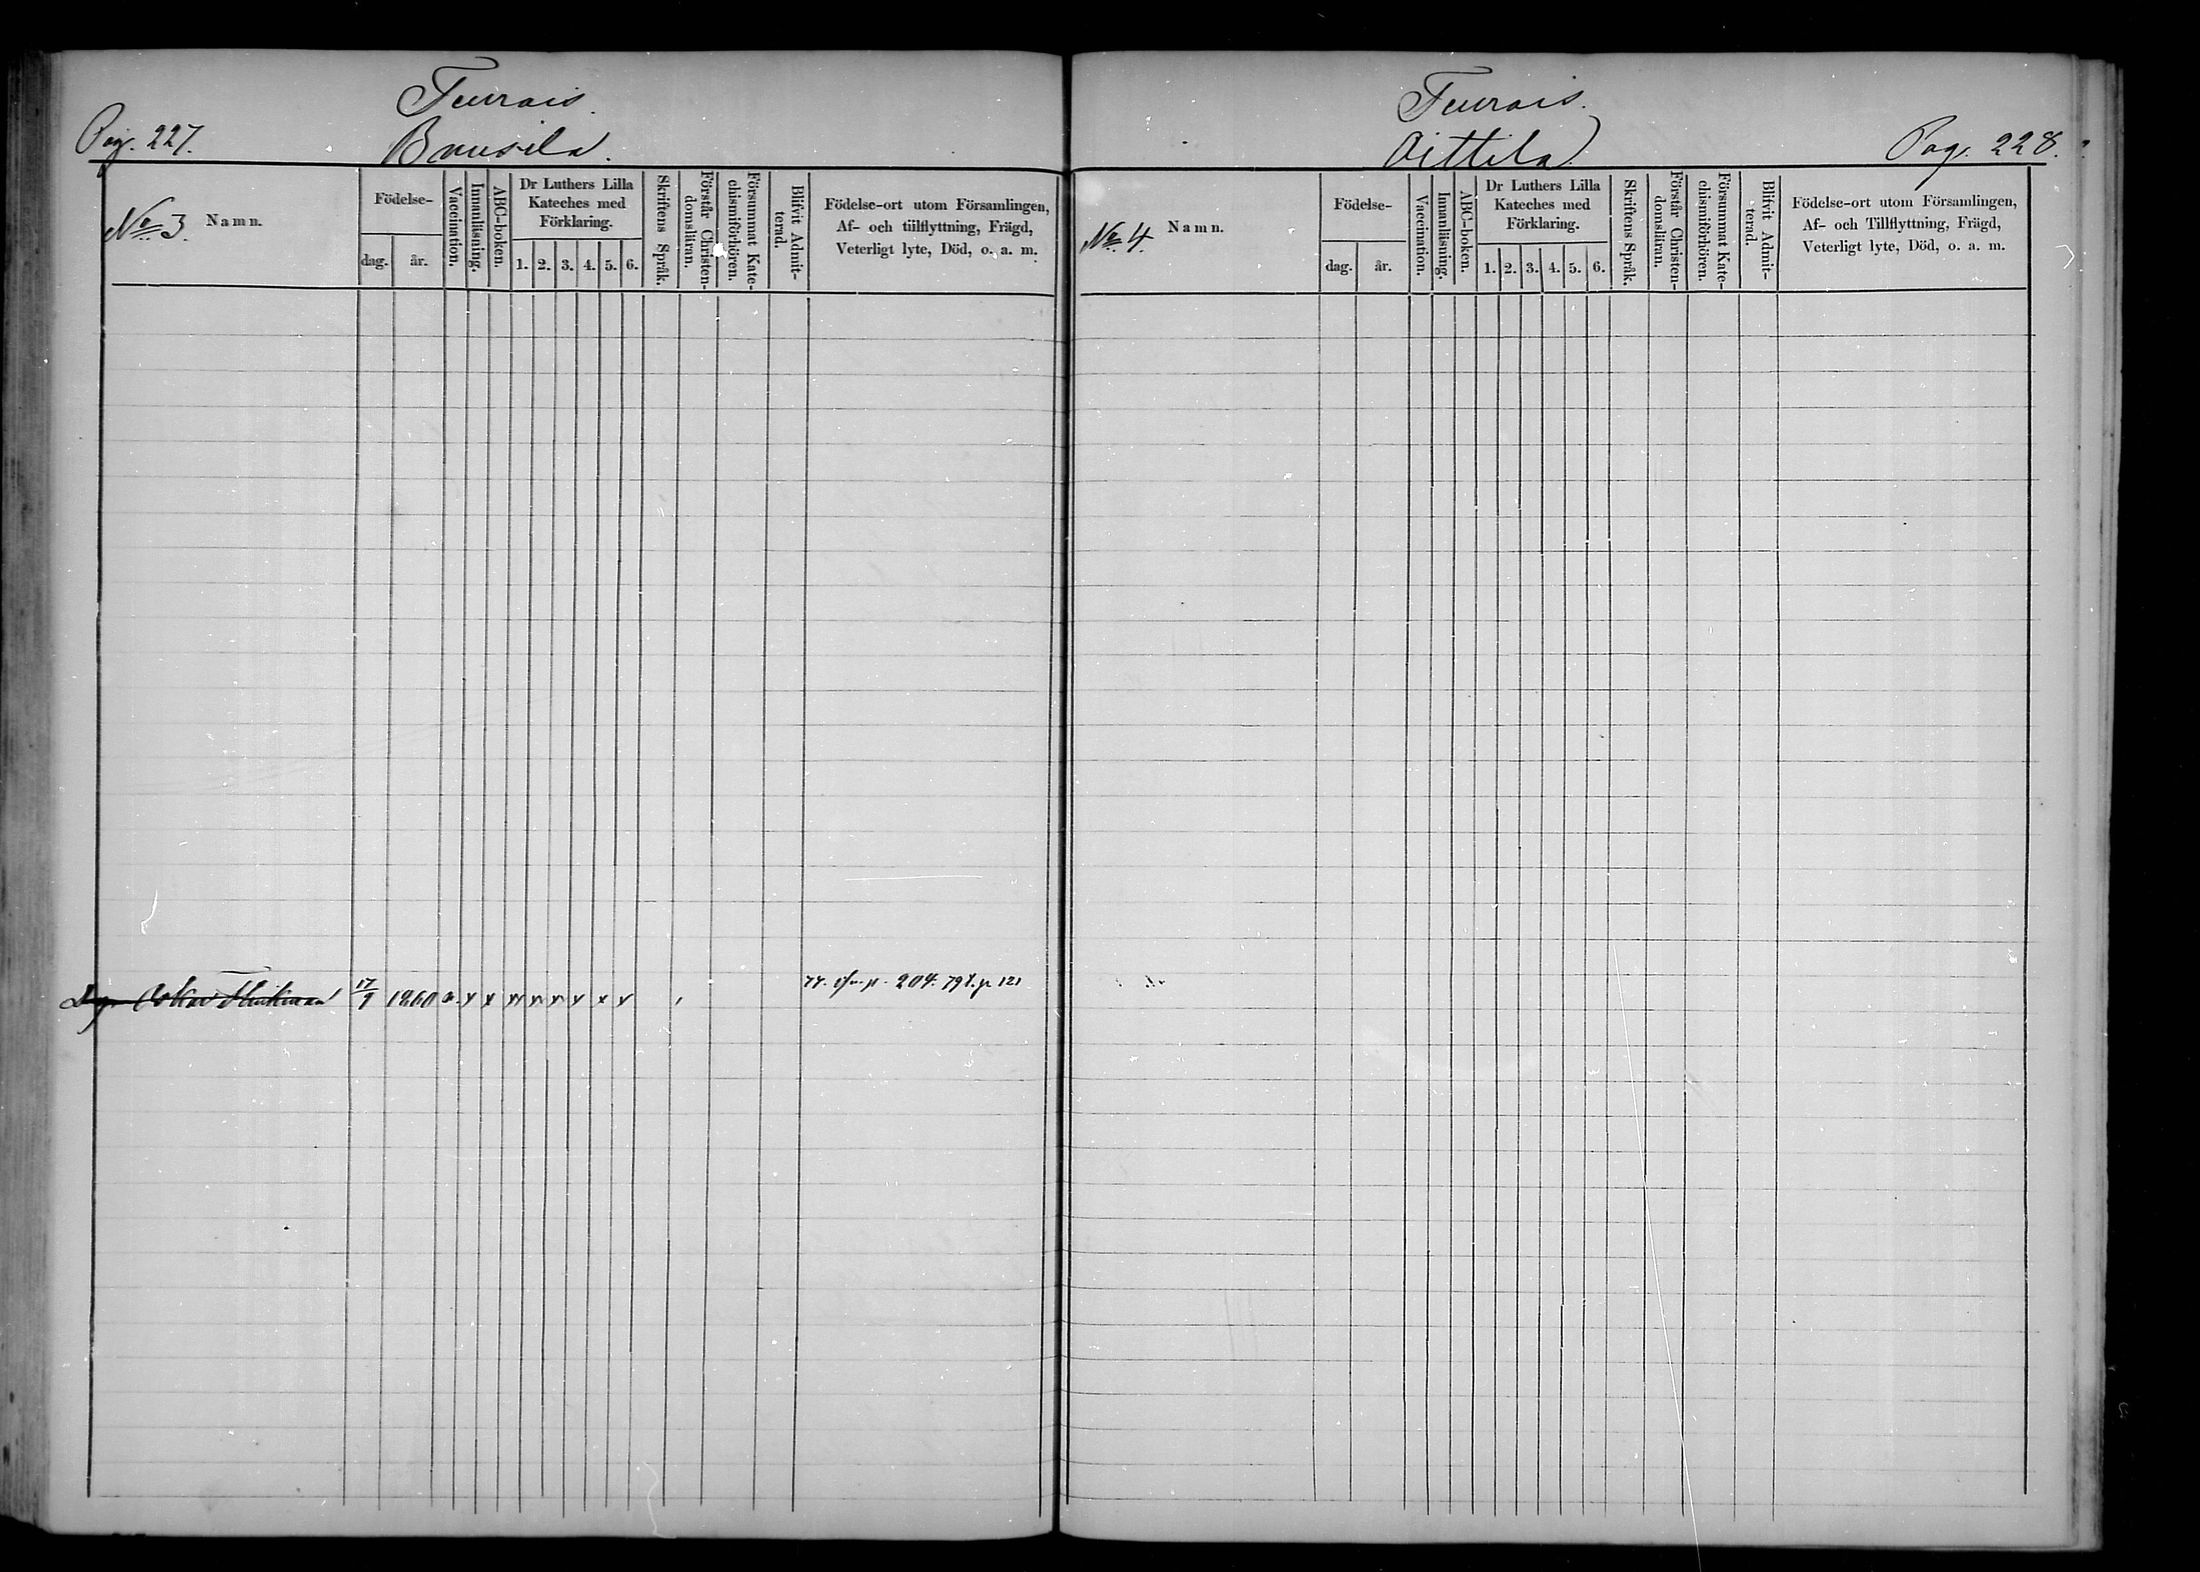 Pag. 227.
Teurois.
Brusila.
No 3.
Namn.
Födelse-
dag.
år.
Vaccination.
Innanläsning.
ABC-boken.
Dr Luthers Lilla
Kateches med
Förklaring.
1. 2. 3. 4. 5. 6.
Skriftens Språk.
Förstår Christen-
domsläran.
Försummat Kate-
chismiförhören.
Blifvit Admit-
terad.
Födelse-ort utom Församlingen,
Af- och tiilflyttning, Frägd,
Veterligt lyte, Död, o. a. m.
Oskar 17/9 1860 x x x x x x x
77. p. 204. 79 p 121
Teurois.
Oittila
Pag. 228.
No 4.
Namn.
Födelse-
dag.
år.
Vaccination.
Innanläsning.
ABC-boken.
Dr Luthers Lilla
Kateches med
Förklaring.
1. 2. 3. 4. 5. 6.
Skriftens Språk.
Förstår Christen-
domsläran.
Försummat Kate-
chismiförhören.
Blifvit Admit-
terad.
Födelse-ort utom Församlingen,
Af- och Tillflyttning, Frägd,
Veterligt lyte, Död, o. a. m.